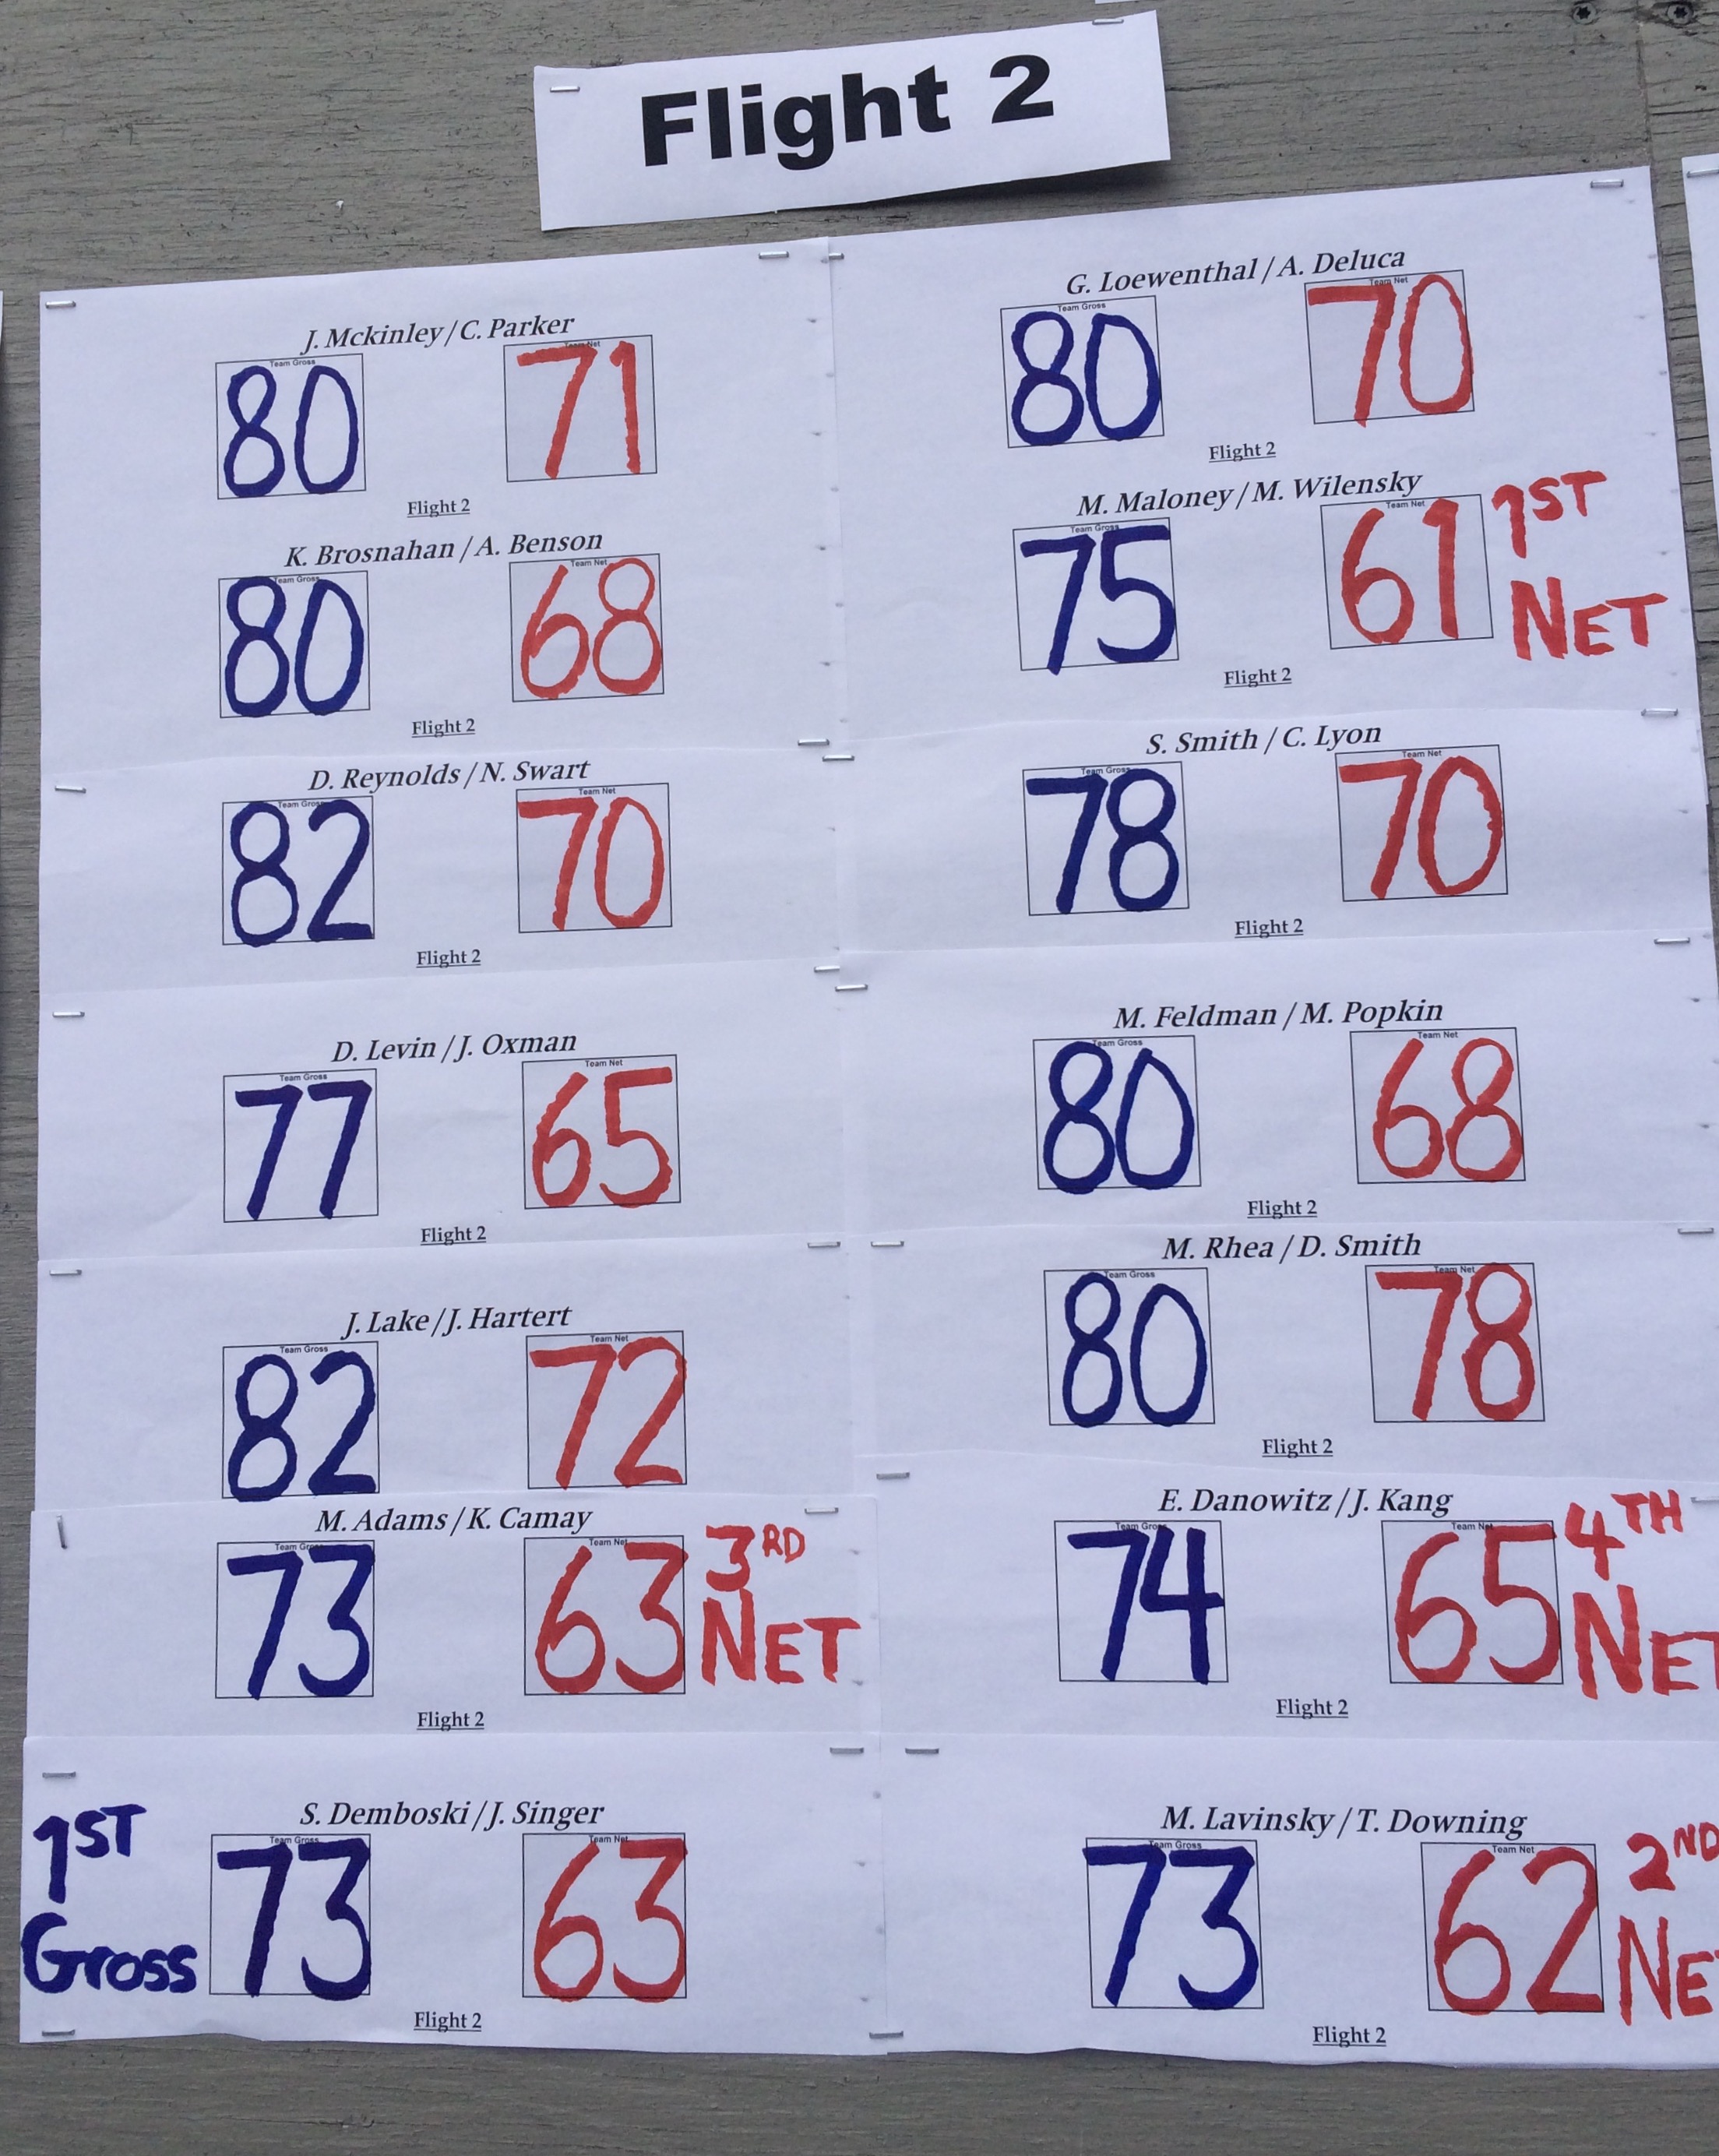 Flight 2
J. Mckinley / C. Parker
Team Gross Team Net
80 71
Flight 2
K. Brosnahan / A. Benson
Team Gross Team Net
80 68
Flight 2
D. Reynolds / N. Swart
Team Gross Team Net
82 70
Flight 2
D. Levin / J. Oxman
Team Gross Team Net
77 65
Flight 2
J. Lake / J. Hartert
Team Gross Team Net
82 72
M. Adams / K. Camay
Team Gross Team Net
73 63 3RD
NET
Flight 2
S. Demboski / J. Singer
Team Gross Team Net
1ST
Gross
73 63
Flight 2
G. Loewenthal / A. Deluca
Team Gross Team Net
80 70
Flight 2
M. Maloney / M. Wilensky
Team Gross Team Net
75 61 1ST
NET
Flight 2
S. Smith / C. Lyon
Team Gross Team Net
78 70
Flight 2
M. Feldman / M. Popkin
Team Gross Team Net
80 68
Flight 2
M. Rhea / D. Smith
Team Gross Team Net
80 78
Flight 2
E. Danowitz / J. Kang
Team Gross Team Net
74 65 4TH
NET
Flight 2
M. Lavinsky / T. Downing
Team Gross Team Net
73 62 2ND
NE
Flight 2